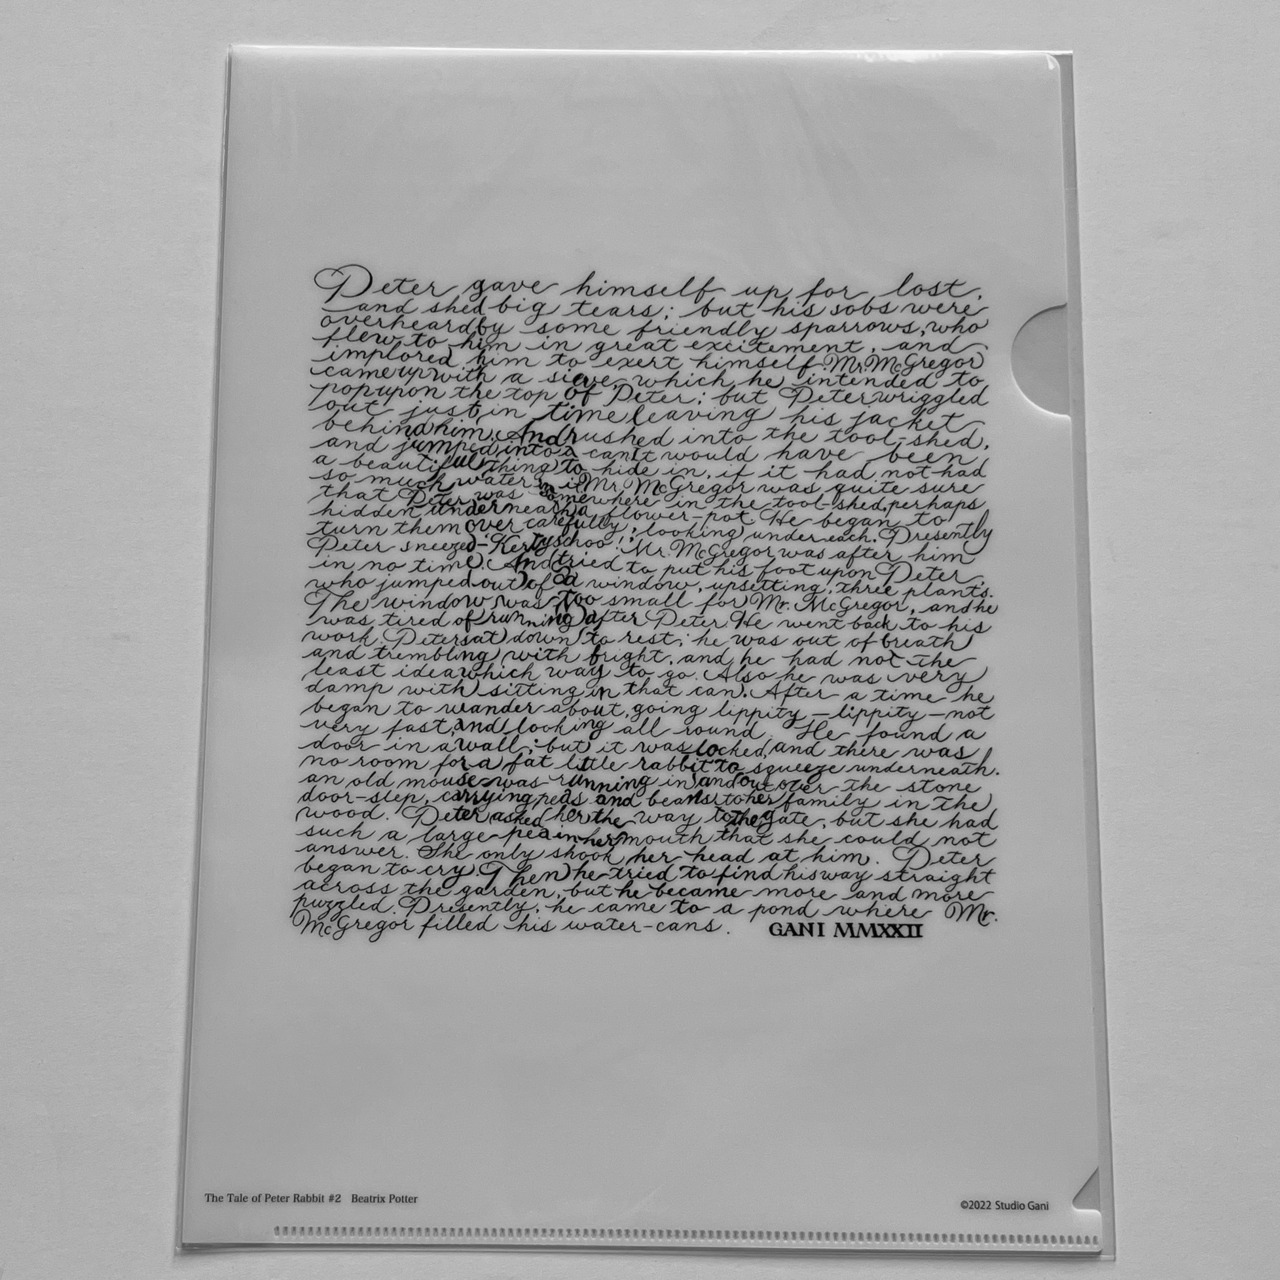 Peter gave himself up for lost,
and shed big tears; but his sobs were
overheard by some friendly sparrows, who
flew to him in great excitement, and
implored him to exert himself. Mr. McGregor
came up with a sieve, which he intended to
pop upon the top of Peter; but Peter wriggled
out just in time leaving his jacket
behind him. And rushed into the tool-shed,
and jumped into a can. It would have been
a beautiful thing to hide in, if it had not had
so much water in it. Mr. McGregor was quite sure
that Peter was somewhere in the tool-shed, perhaps
hidden underneath a flower-pot. He began to
turn them over carefully, looking under each. Presently
Peter sneezed-Kertyschoo! Mr. McGregor was after him
in no time. And tried to put his foot upon Peter,
who jumped out of a window, upsetting three plants.
The window was too small for Mr. McGregor, and he
was tired of running after Peter. He went back to his
work. Peter sat down to rest; he was out of breath
and trembling with fright, and he had not the
least idea which way to go. Also he was very
damp with sitting in that can. After a time he
began to wander about, going lippity—lippity—not
very fast, and looking all round. He found a
door in a wall; but it was locked, and there was
no room for a fat little rabbit to squeeze underneath.
an old mouse was running in and out over the stone
door-step, carrying peas and beans to her family in the
wood. Peter asked her the way to the gate, but she had
such a large pea in her mouth that she could not
answer. She only shook her head at him. Peter
began to cry. Then he tried to find his way straight
across the garden, but he became more and more
puzzled. Presently, he came to a pond where Mr.
McGregor filled his water-cans. GANI MMXXII
The Tale of Peter Rabbit #2 Beatrix Potter
©2022 Studio Gani